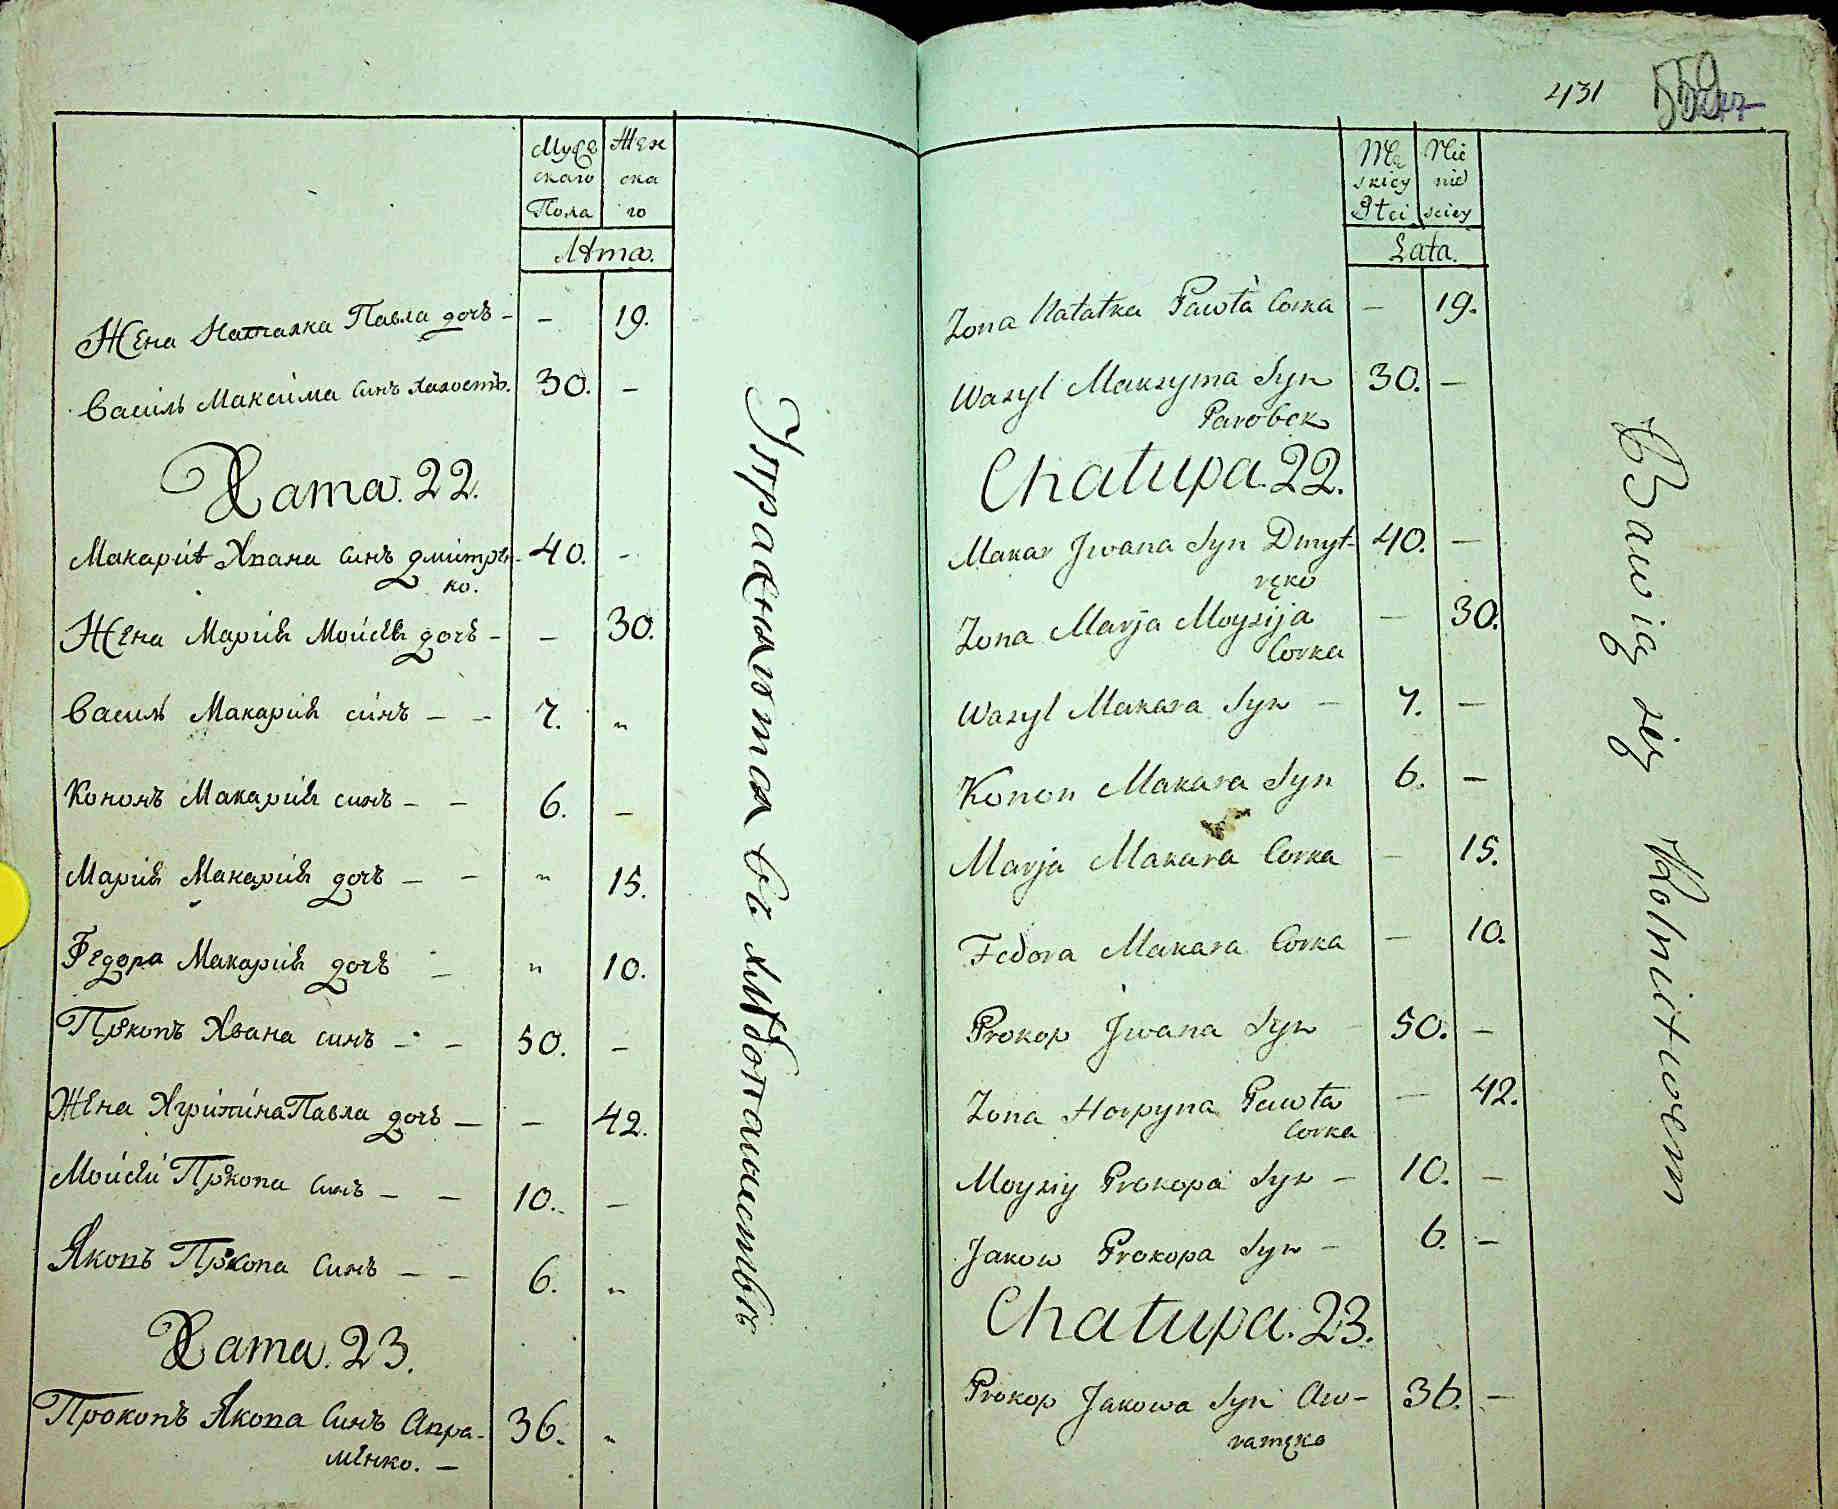 Мужс Жен
скаго ска
Пола го
Лѣта.
Жена Наталка Павла дочъ - - 19.
Василь Максима синъ холостъ. 30. -
Хата. 22.
Макарій Ивана синъ Дмитрен- 40. -
ко.
Жена Марія Моисея дочъ - - 30.
Василь Макарія синъ - - 7. "
Кононъ Макарія синъ - - 6. -
Марія Макарія дочъ - - " 15.
Федора Макарія дочъ - " 10.
Прокопъ Ивана синъ - - 50. -
Жена Агрипина Павла дочъ - - 42.
Мойсей Прокопа синъ - - 10. -
Яковъ Прокопа синъ - - 6. "
Хата. 23.
Прокопъ Якова синъ Авра- 36. "
менко. -
Упражняются въ хлѣбопашествѣ
431
Mę Nie
skiey nie
Płci sciey
Lata.
Zona Natałka Pawła Corka - 19.
Wasyl Maksyma Syn 30. -
Parobek
Chałupa 22.
Makar Jwana Syn Dmyt- 40. -
ręko
Zona Marja Moysija - 30.
Corka
Wasyl Makara Syn - 7. -
Konon Makara Syn 6. -
Marja Makara Corka - 15.
Fedora Makara Corka - 10.
Prokop Jwana Syn - 50. -
Zona Horpyna Pawła - 42.
Corka
Moysiy Prokopa Syn - 10. -
Jakow Prokopa Syn - 6. -
Chałupa. 23.
Prokop Jakowa Syn Aw- 36. -
ramęko
Bawią się Rolnictwem